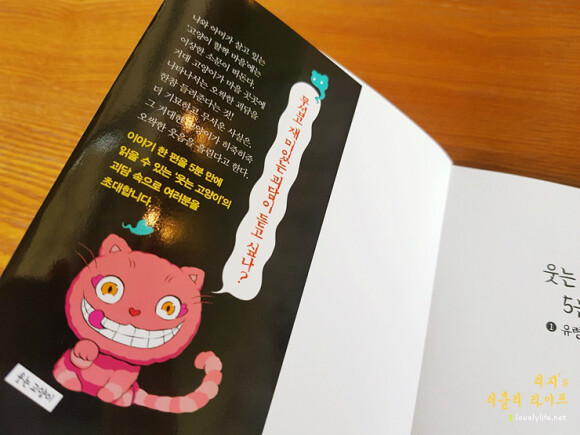 나와 야미가 살고 있는
'고양이 할짝 마을'에는
이상한 소문이 떠돈다.
거대 고양이가 마을 곳곳에
나타나서는 오싹한 괴담을
한참 들려준다는 것!
더 기묘하고 무서운 사실은,
그 거대한 고양이가 히죽히죽
오싹한 웃음을 흘린다고 한다.
이야기 한 편을 5분 만에
읽을 수 있는 '웃는 고양이'의
괴담 속으로 여러분을
초대합니다.
무섭고 재미있는 괴담이 듣고 싶냐?
웃는 고양이
웃는
5분
1 유령
리지's
러블리 라이프
lovelylife.net